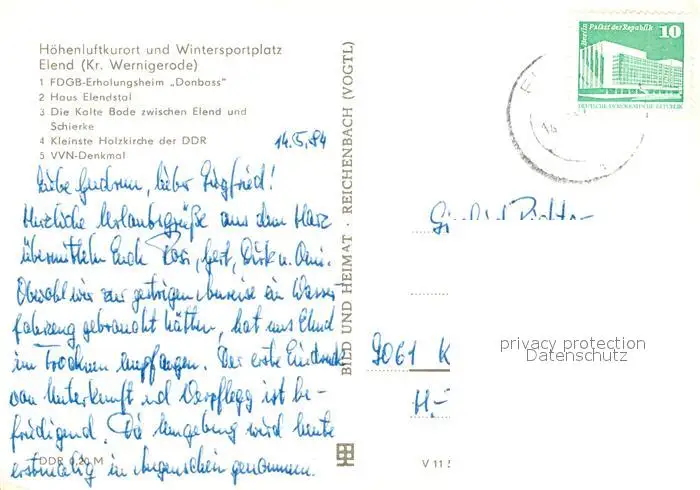 Höhenluftkurort und Wintersportplatz
Elend (Kr. Wernigerode)
1 FDGB-Erholungsheim „Donbass"
2 Haus Elendstal
3 Die Kalte Bode zwischen Elend und
Schierke
4 Kleinste Holzkirche der DDR
5 VVN-Denkmal
14.5.84
Liebe Gudrun, lieber Siegfried!
Herzliche Urlaubsgrüße aus dem Harz
übermitteln Euch Rosi, Gert, Dirk u. Omi.
Obwohl wir zur gestrigen Anreise ein Wasser
fahrzeug gebraucht hätten, hat uns Elend
im Trocknen empfangen. Der erste Eindruck
von Unterkunft und Verpflegg ist be-
friedigend. Die Umgebung wird heute
erstmalig in Augenschein genommen.
DDR 0,20 M
BILD UND HEIMAT · REICHENBACH (VOGTL)
V 11 5
Berlin Palast der Republik
10
DEUTSCHE DEMOKRATISCHE REPUBLIK
9061 K
H.-
privacy protection
Datenschutz